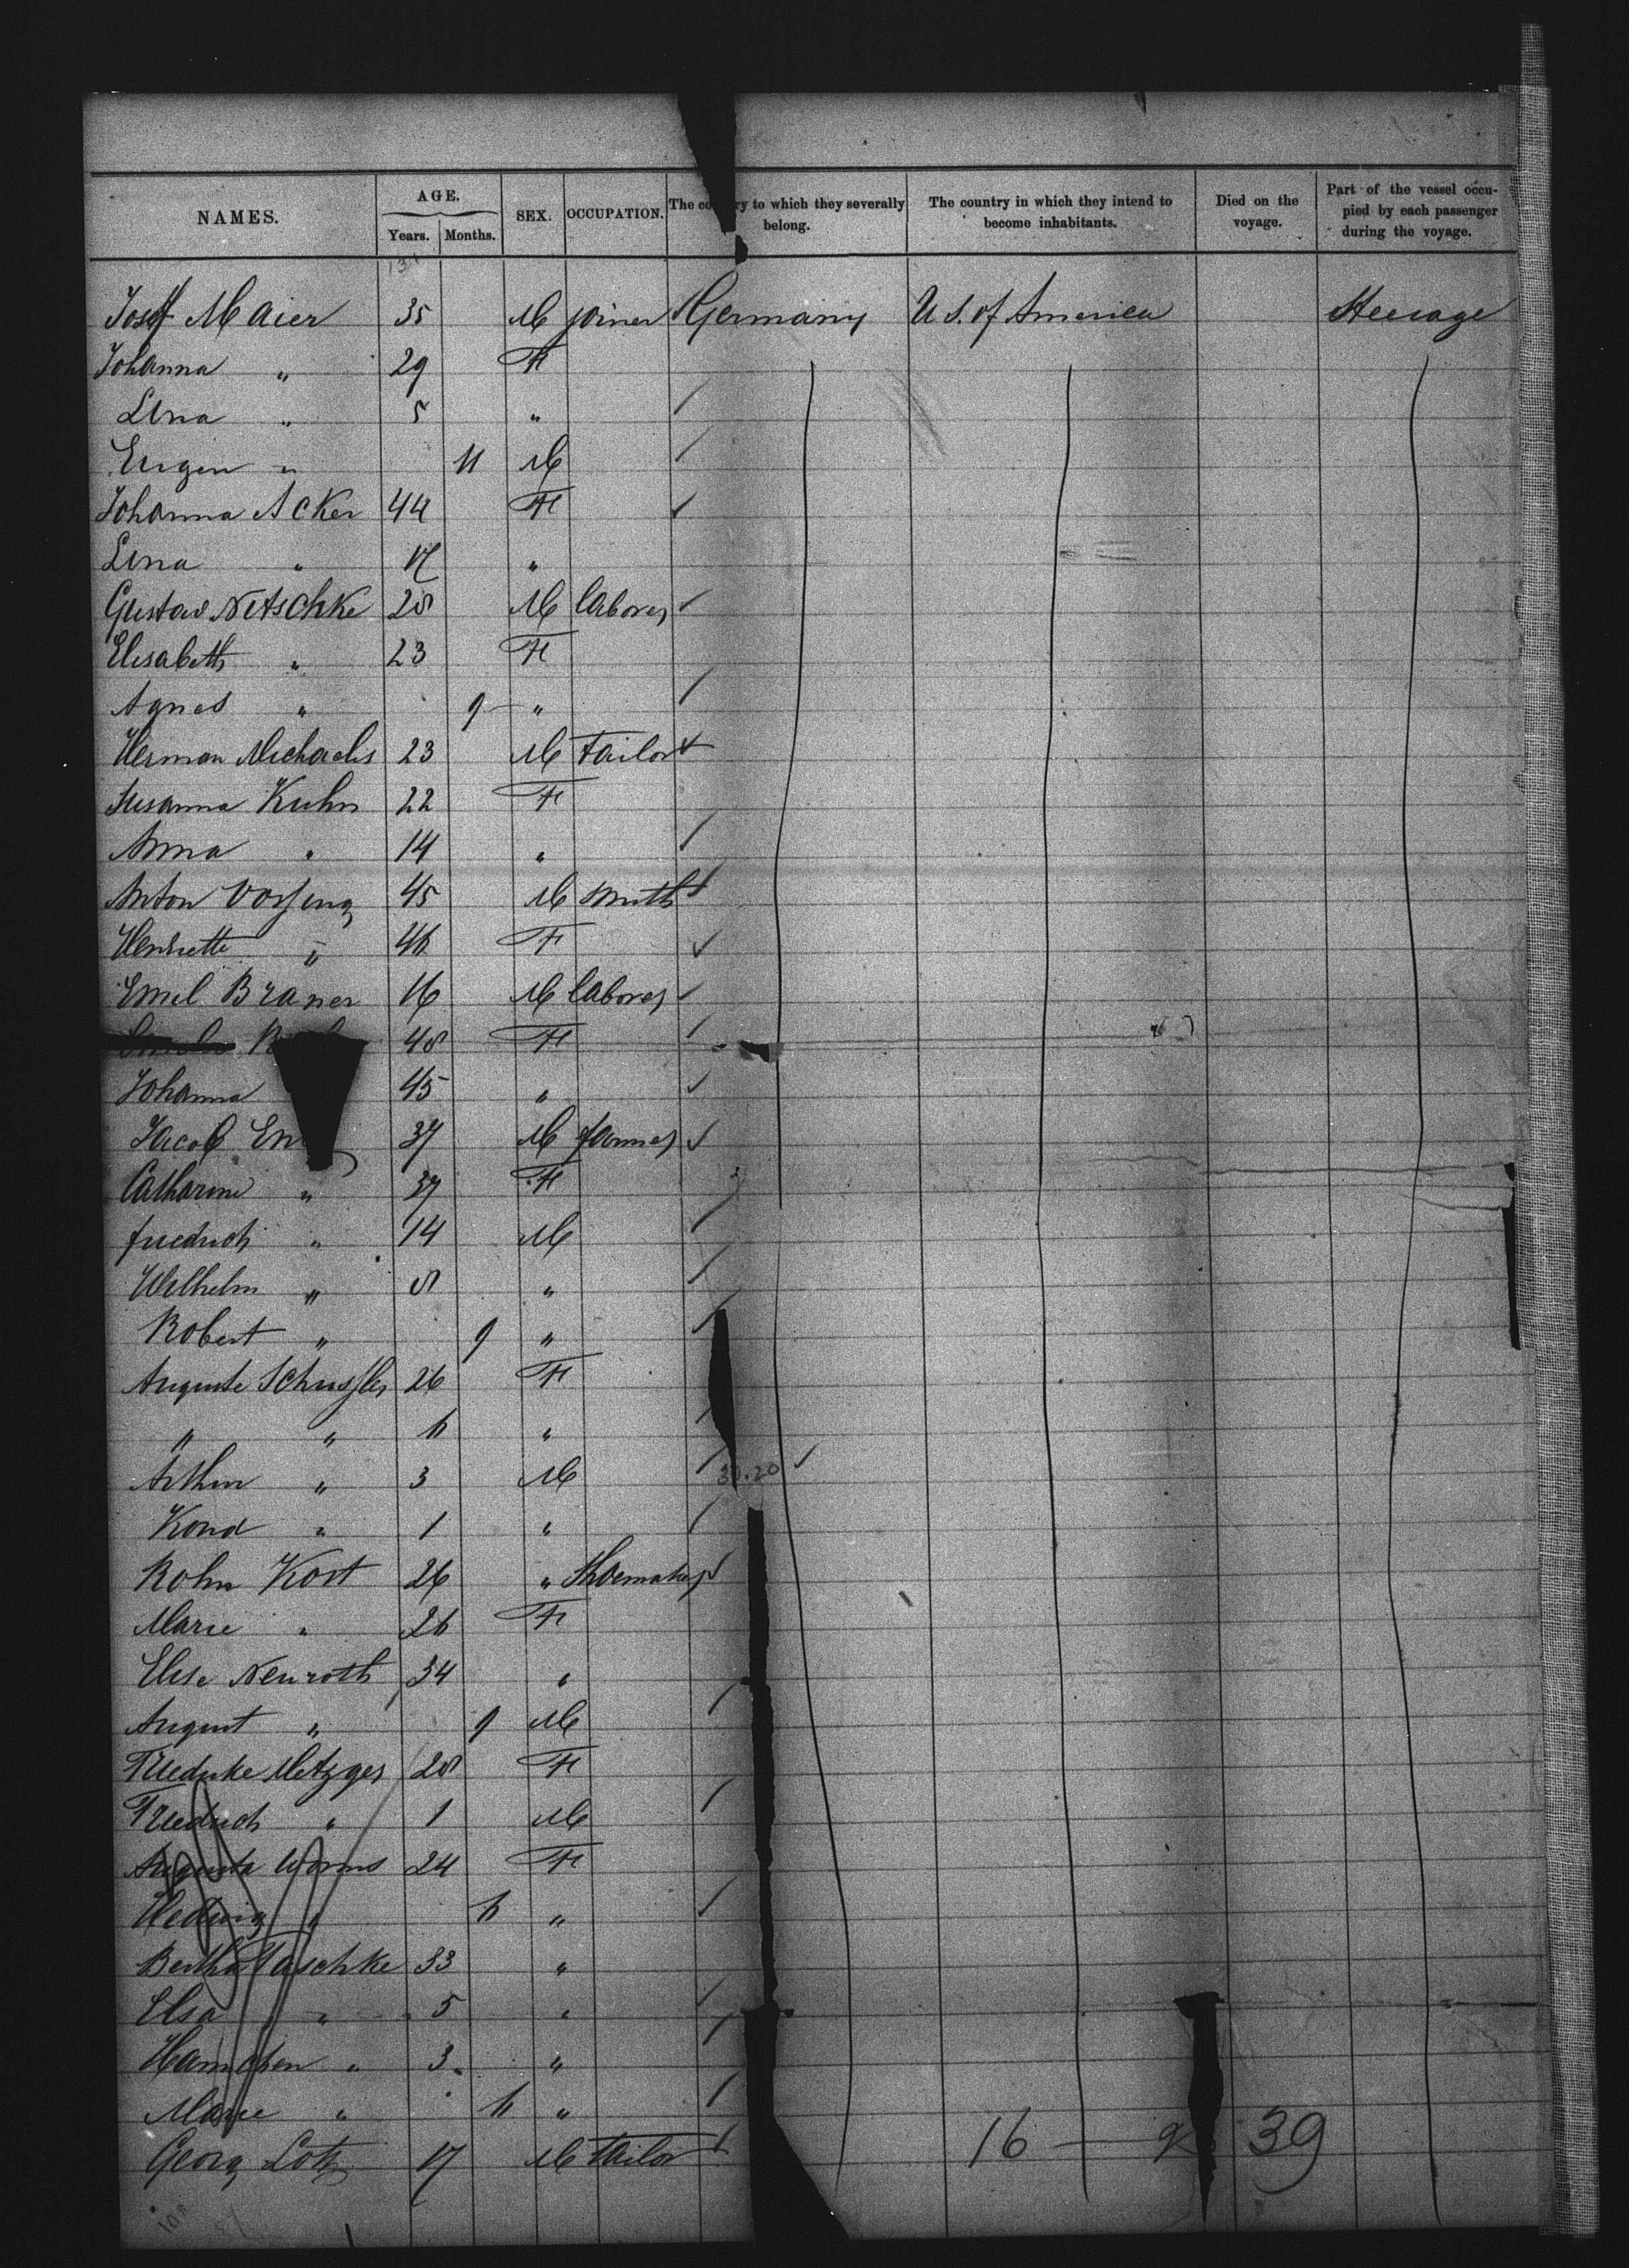 NAMES. AGE. SEX. OCCUPATION. The country to which they severally belong. The country in which they intend to become inhabitants. Died on the voyage. Part of the vessel occupied by each passenger during the voyage.
Years. Months.
Josef Maier 35 M joiner Germany U.S. of America Steerage
Johanna " 29 F
Lina " 5 "
Eugen " 11 M
Johanna Acker 44 F
Lina " 17 "
Gustav Netschke 28 M laborer
Elisabeth " 23 F
Agnes " 9 "
Herman Michaelis 23 M Tailor
Susanna Kuhn 22 F
Anna " 14 "
Anton 45 M smith
Henriette " 46 F
Emil Braner 16 M laborer
48 F
Johanna 45 "
Jacob 37 M farmer
Catharine " 37 F
friedrich " 14 M
Wilhelm " 8 "
Robert " 9 "
Auguste Schussler 26 F
" " 6 "
Arthur " 3 M
Konrd " 1 "
Rohn Kost 26 " Shoemaker
Marie " 26 F
Elise Neuroth 34 "
August " 9 M
Friedricke Metzger 28 F
Friedrich " 1 M
Augusta Worms 24 F
Hedwig " 6 "
Bertha Taschke 33 "
Elsa " 5 "
Hannchen " 3 "
Marie " 6 "
Georg Lotz 17 M Tailor
16 — 39